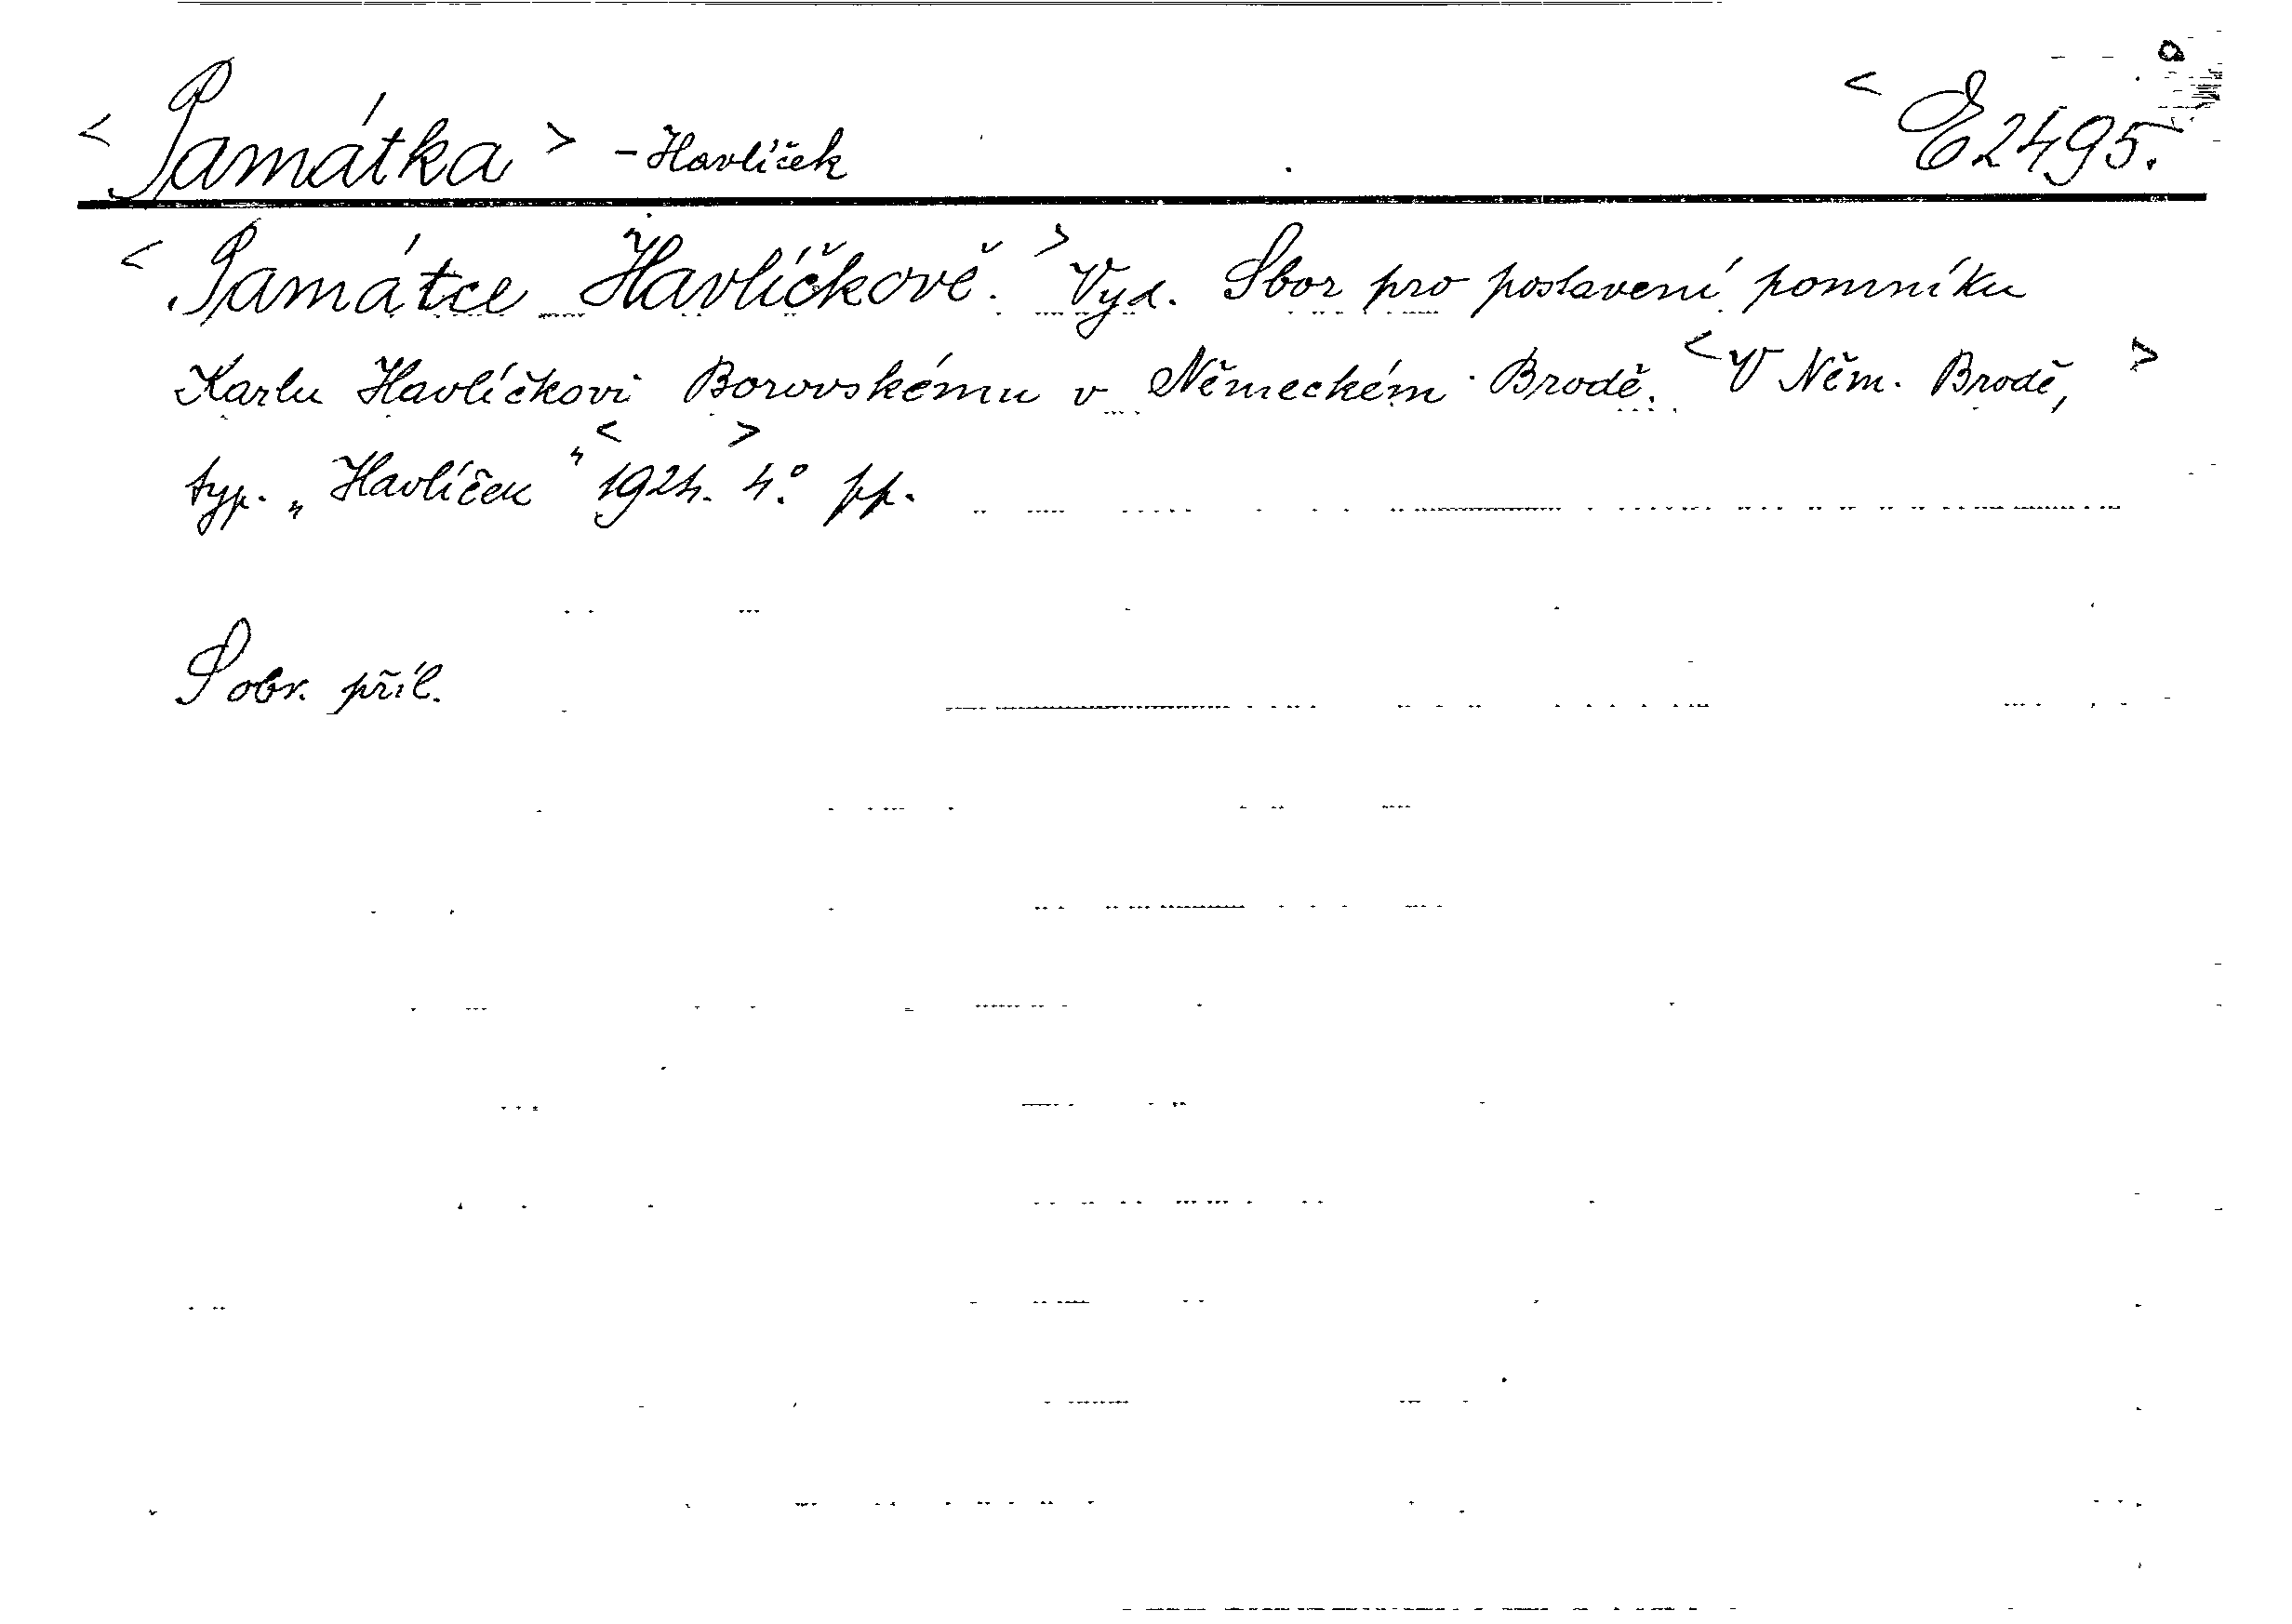 < Památka > - Havlíček < E 2495.
< Památce Havlíčkově. > Vyd. Sbor pro postavení pomníku
Karlu Havlíčkovi Borovskému v Německém Brodě. < V Něm. Brodě, >
typ. „Havlíček" < 1924. > 4.° pp.
S obr. příl.